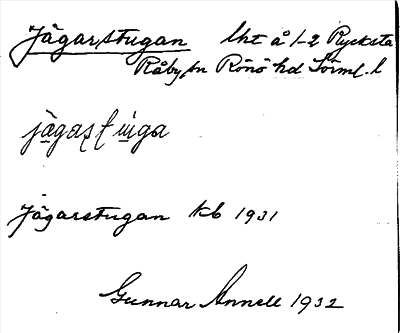 Jägarstugan lht å 1-2 Rycksta
Råby sn Rönö hdÖrml. l
jägastuga
Jägarstugan kb 1931
Gunnar Annell 1932